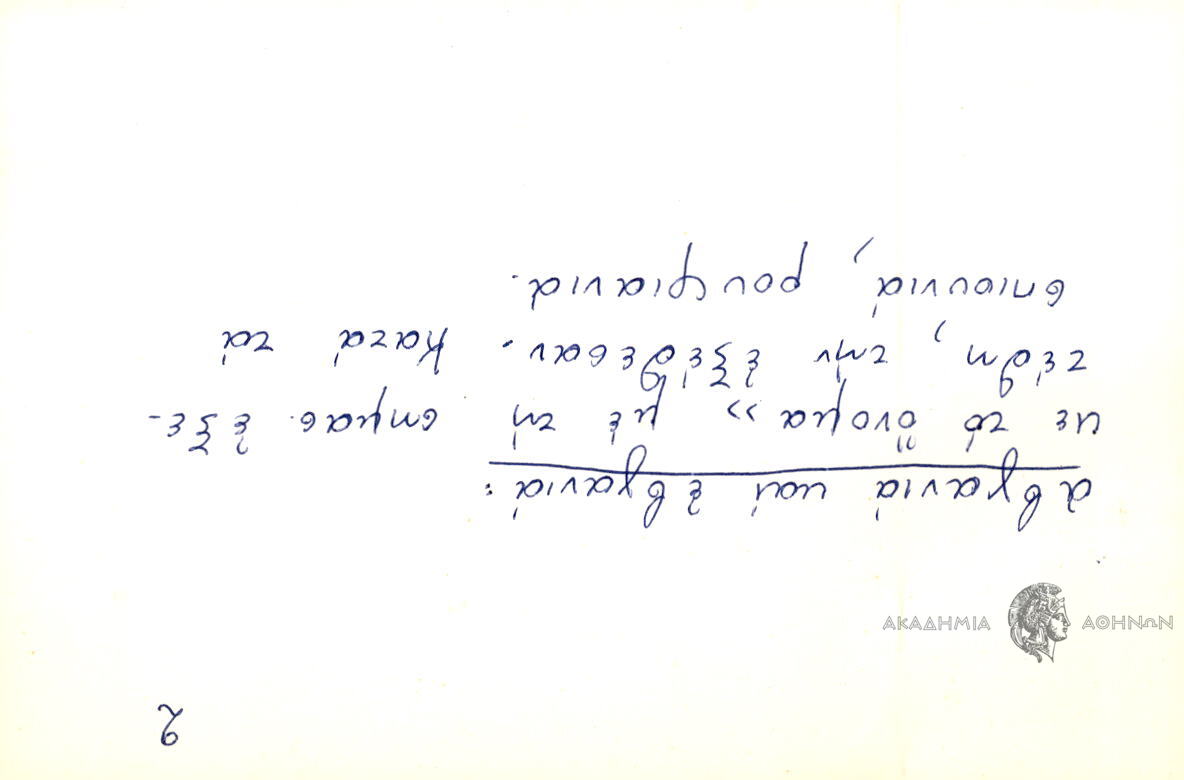 2
ἀβγανιά καί ἐβγανιά:
κε τό ὄνομα» μέ τή σημασ. ἐξε-
τέθη, τήν ἐξέθεσαν. Κατά τά
σπιουνιά, ρουφιανιά.
ΑΚΑΔΗΜΙΑ ΑΘΗΝΩΝ